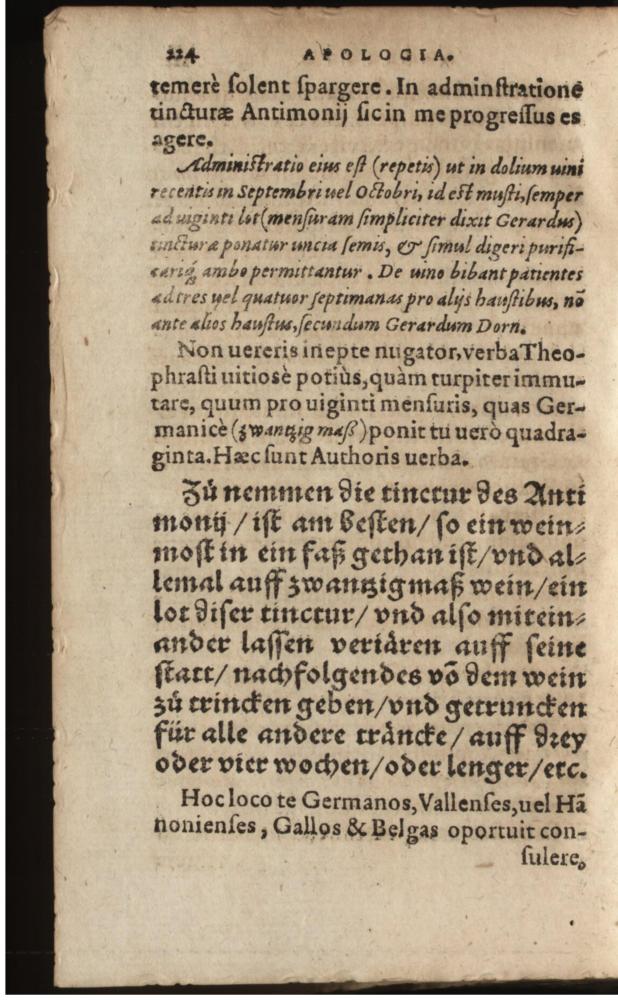 224 APOLOGIA.
temerè ſolent ſpargere. In adminſtratione
tincturæ Antimonij ſic in me progreſſus es
agere.
Adminiſtratio eius eſt (repetis) ut in dolium uini
recentis in Septembri uel Octobri, id eſt muſti, ſemper
ad uiginti lot (menſuram ſimpliciter dixit Gerardus)
tincturæ ponatur uncia ſemis, & ſimul digeri purifi-
cariq́; ambo permittantur. De uino bibant patientes
ad tres uel quatuor ſeptimanas pro alijs hauſtibus, nō
ante alios hauſtus, ſecundum Gerardum Dorn.
Non uereris inepte nugator, verba Theo-
phraſti uitiosè potiùs, quàm turpiter immu-
tare, quum pro uiginti menſuris, quas Ger-
manicè (zwantzig maß) ponit tu uerò quadra-
ginta. Hæc ſunt Authoris uerba.
Zů nemmen die tinctur des Anti
monij / iſt am beſten / ſo ein wein⸗
moſt in ein faß gethan iſt / vnd al⸗
lemal auff zwantzig maß wein / ein
lot diſer tinctur / vnd alſo mitein⸗
ander laſſen veriären auff ſeine
ſtatt / nachfolgendes vō dem wein
zů trincken geben / vnd getruncken
für alle andere träncke / auff drey
oder vier wochen / oder lenger / etc.
Hoc loco te Germanos, Vallenſes, uel Hā
nonienſes, Gallos & Belgas oportuit con-
ſulere,